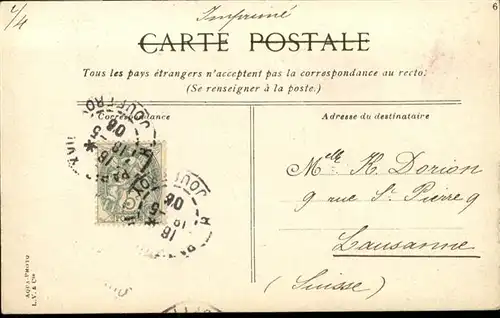 2/4
Imprimé
6
CARTE POSTALE
Tous les pays étrangers n'acceptent pas la correspondance au recto:
(Se renseigner à la poste.)
Correspondance
Adresse du destinataire
Melle K. Dorion
9 rue St. Pierre 9
Lausanne
(Suisse)
AQUA-PHOTO
L.V. & Cie
16
5
06
JOUFFROY